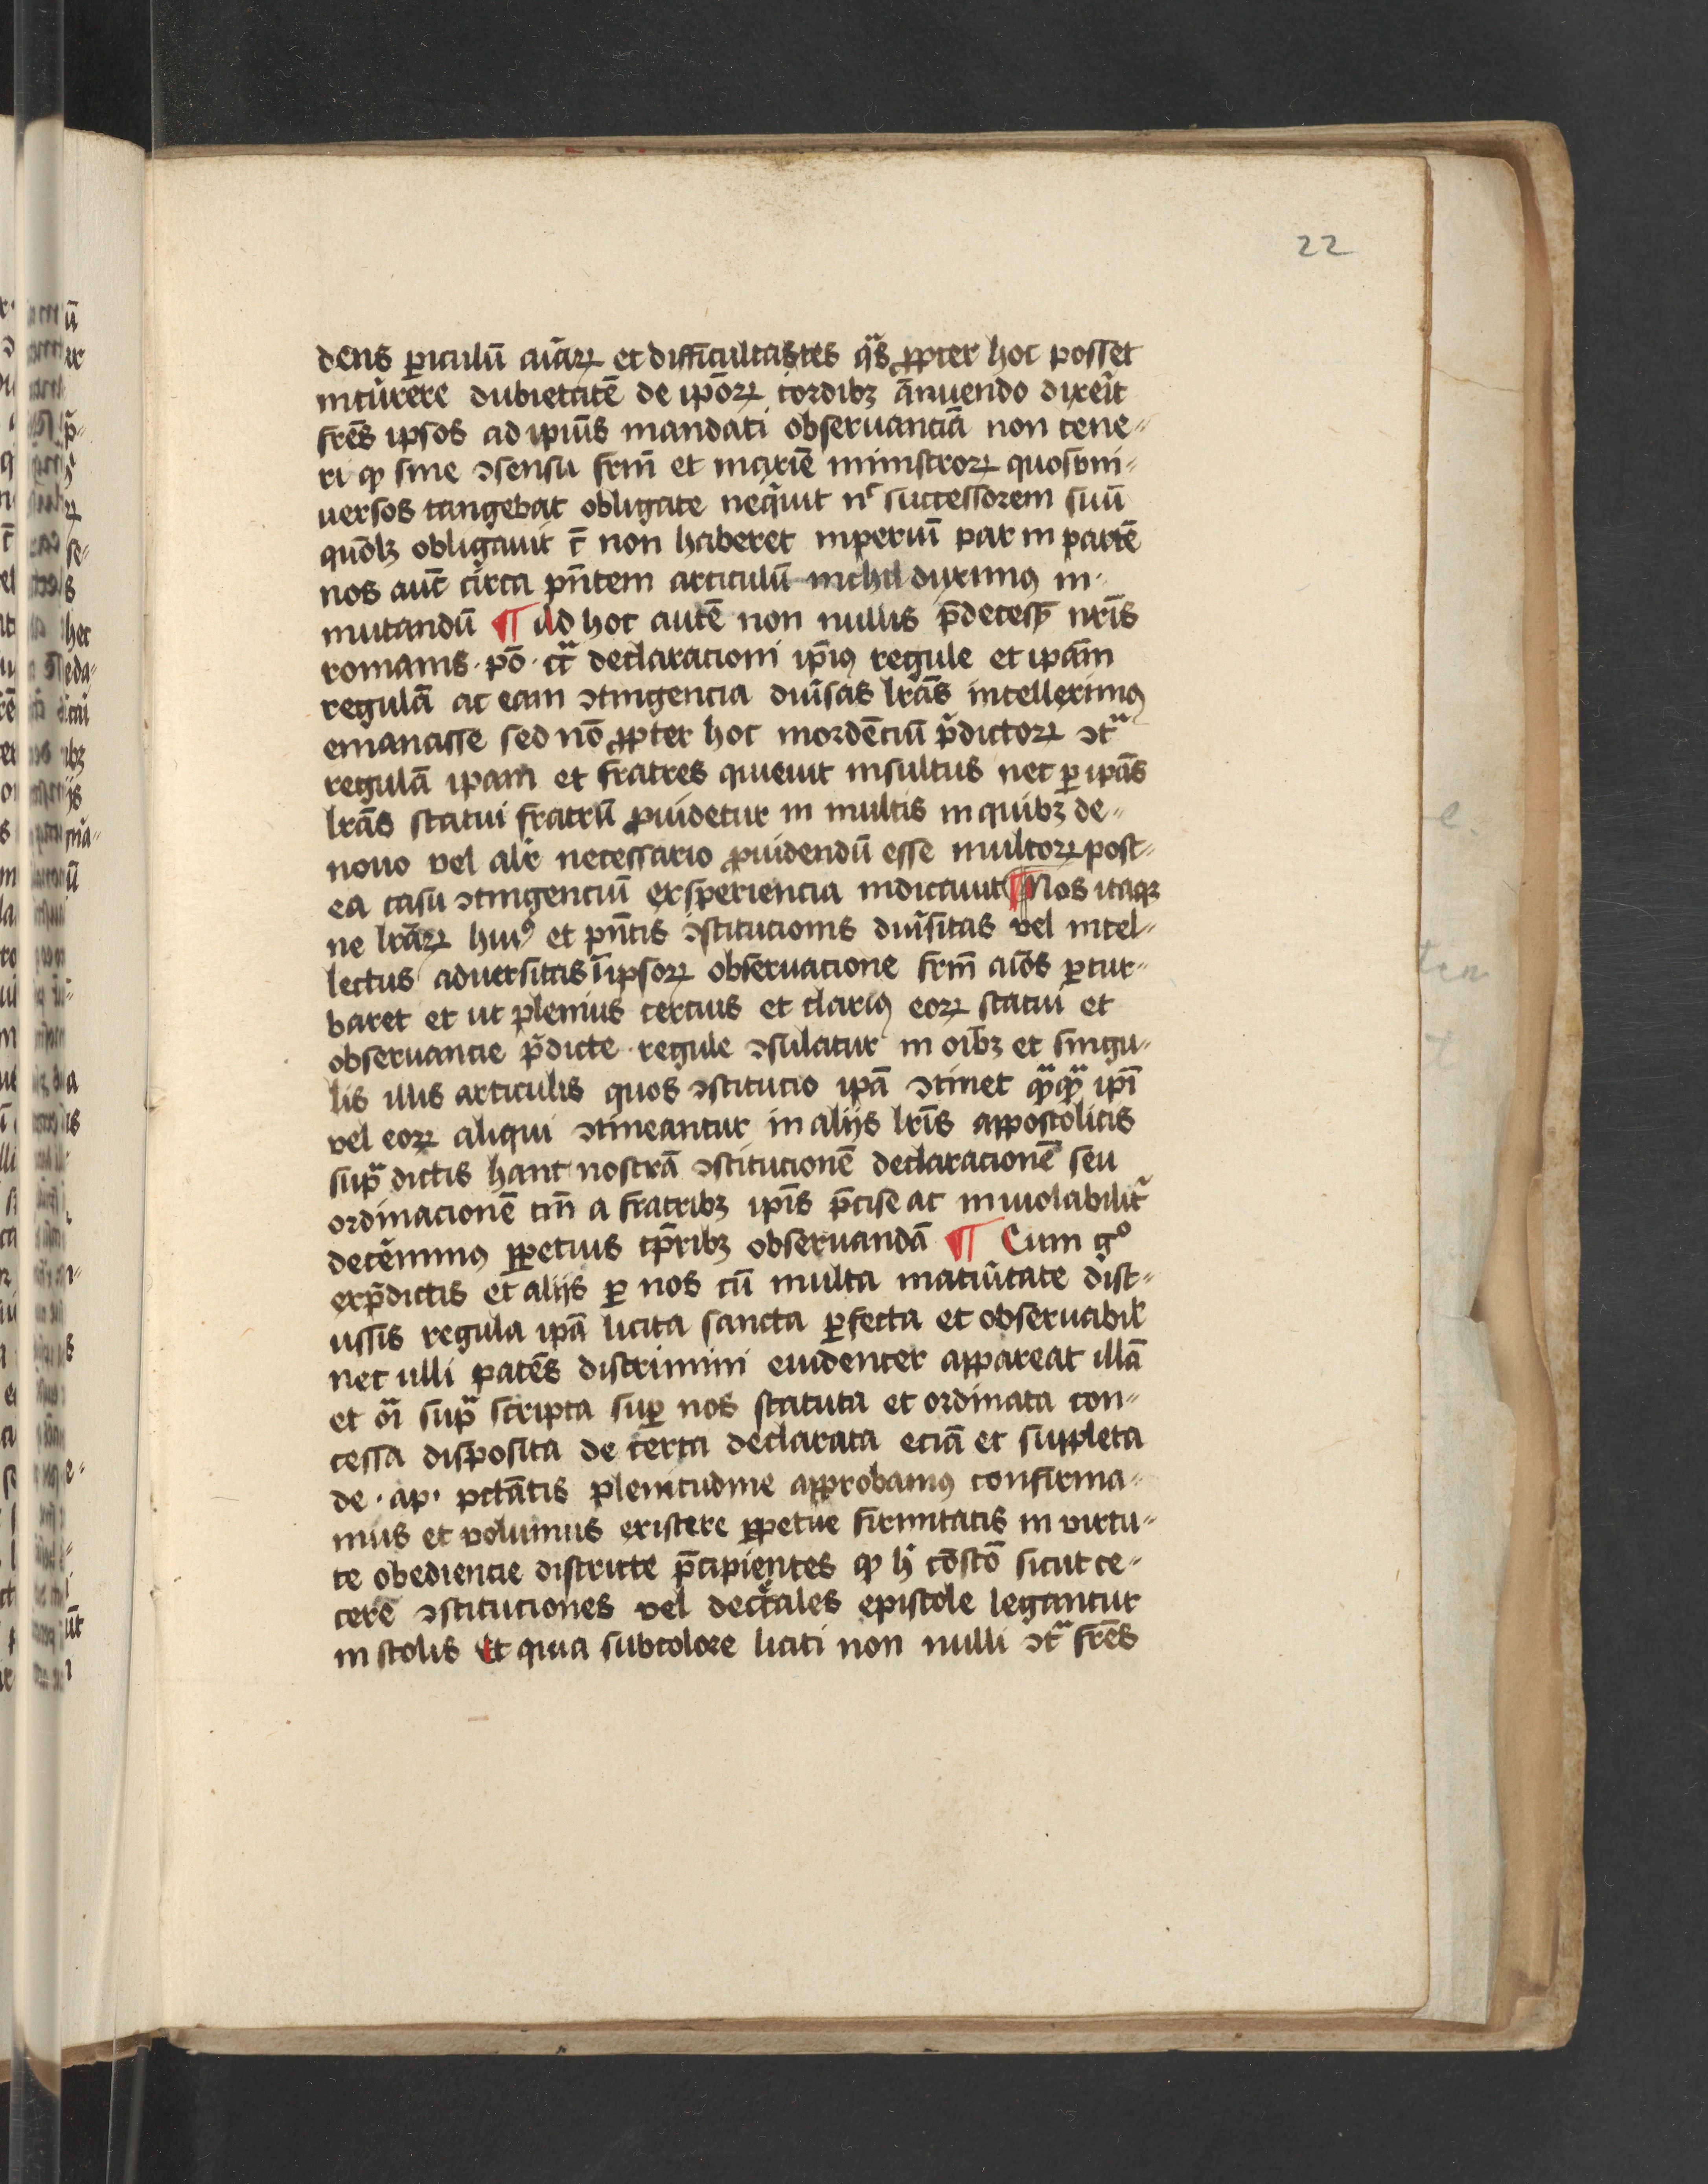 22
dens ꝑiculū aı̄aꝝ et difficultastes qͣs ꝓpter hoc posset
incurrere dubietatē de ip̄oꝝ cordibꝫ āmuendo dixeı̄t
frēs ipsos ad ipiuˢ mandati obseruanciā non tene⸗
ri ꝙ sine ↄsensu frm̄ et maxiē ministroꝝ quos vni⸗
uersos tangebat obligare neqͥuit nͨ successorem suū
quōlꝫ obligauit c̄ non haberet inperiū par in parē
nos aut̄ circa pn̄tem articulū nichil diximꝰ in⸗
mutandū ¶ Ad hoc autē non nullis p̄decess nrı̄s
romanis · pō · cͣ declaracioni ip̄iꝰ regule et ipām
regulā ac eam ↄtingencia diuı̄sas lrās intelleximꝰ
emanasse sed nō ꝓpter hoc mordēciū p̄dictoꝝ ↄtͣ
regulā ipam et fratres quieuit insultus nec ꝑ ipās
lrās statui fratrū ꝓuidetur in multis in quibꝫ de⸗
nouo vel alr̄ necessario ꝓuidendū esse multoꝝ post⸗
ea casu ↄtingenciū exsperiencia indicauit ¶ Nos itaqꝫ
ne lrāꝝ huiꝰ et pn̄tis ↄstitucionis diuı̄sitas vel intel⸗
lectus aduersitas ı̄ ipsoꝝ obseruacione frm̄ aı̄os ꝑtur⸗
baret et ut plenius cercius et clariꝰ eoꝝ statui et
obseruancie p̄dicte · regule ↄsulatur in oı̄bꝫ et singu⸗
lis illis articulis quos ↄstitucio ipā ↄtinet qͣqͣ ipı̄
vel eoꝝ aliqui ↄtineantur in alijs lrı̄s appostolicis
supͣ dictis hanc nostrā ↄstitucionē declaracionē seu
ordinacionē tm̄ a fratribꝫ ipı̄s p̄cise ac inuiolabilit̄
decēnimꝰ ꝑpetuis tp̄ribꝫ obseruandā ¶ Cum gͦ
exp̄dictis et alijs ꝑ nos cū multa matūitate disc⸗
ussis regula ipā licita sancta ꝑfecta et obseruabil̄
nec ulli patēs discrimini euidenter appareat illā
et oı̄a supͣ scripta suꝑ nos statuta et ordinata con⸗
cessa disposita de certa declarata eciā et suppleta
de · ap · ptātis plenitudine approbamꝰ confirma⸗
mus et volumus existere ꝑpetue firmitatis in virtu⸗
te obediencie districte p̄cipientes ꝙ hͨ cōstō sicut ce⸗
tere ↄstituciones vel decrͤales epistole legantur
in scolis Et quia sub colore liciti non nulli ↄtͣ frēs